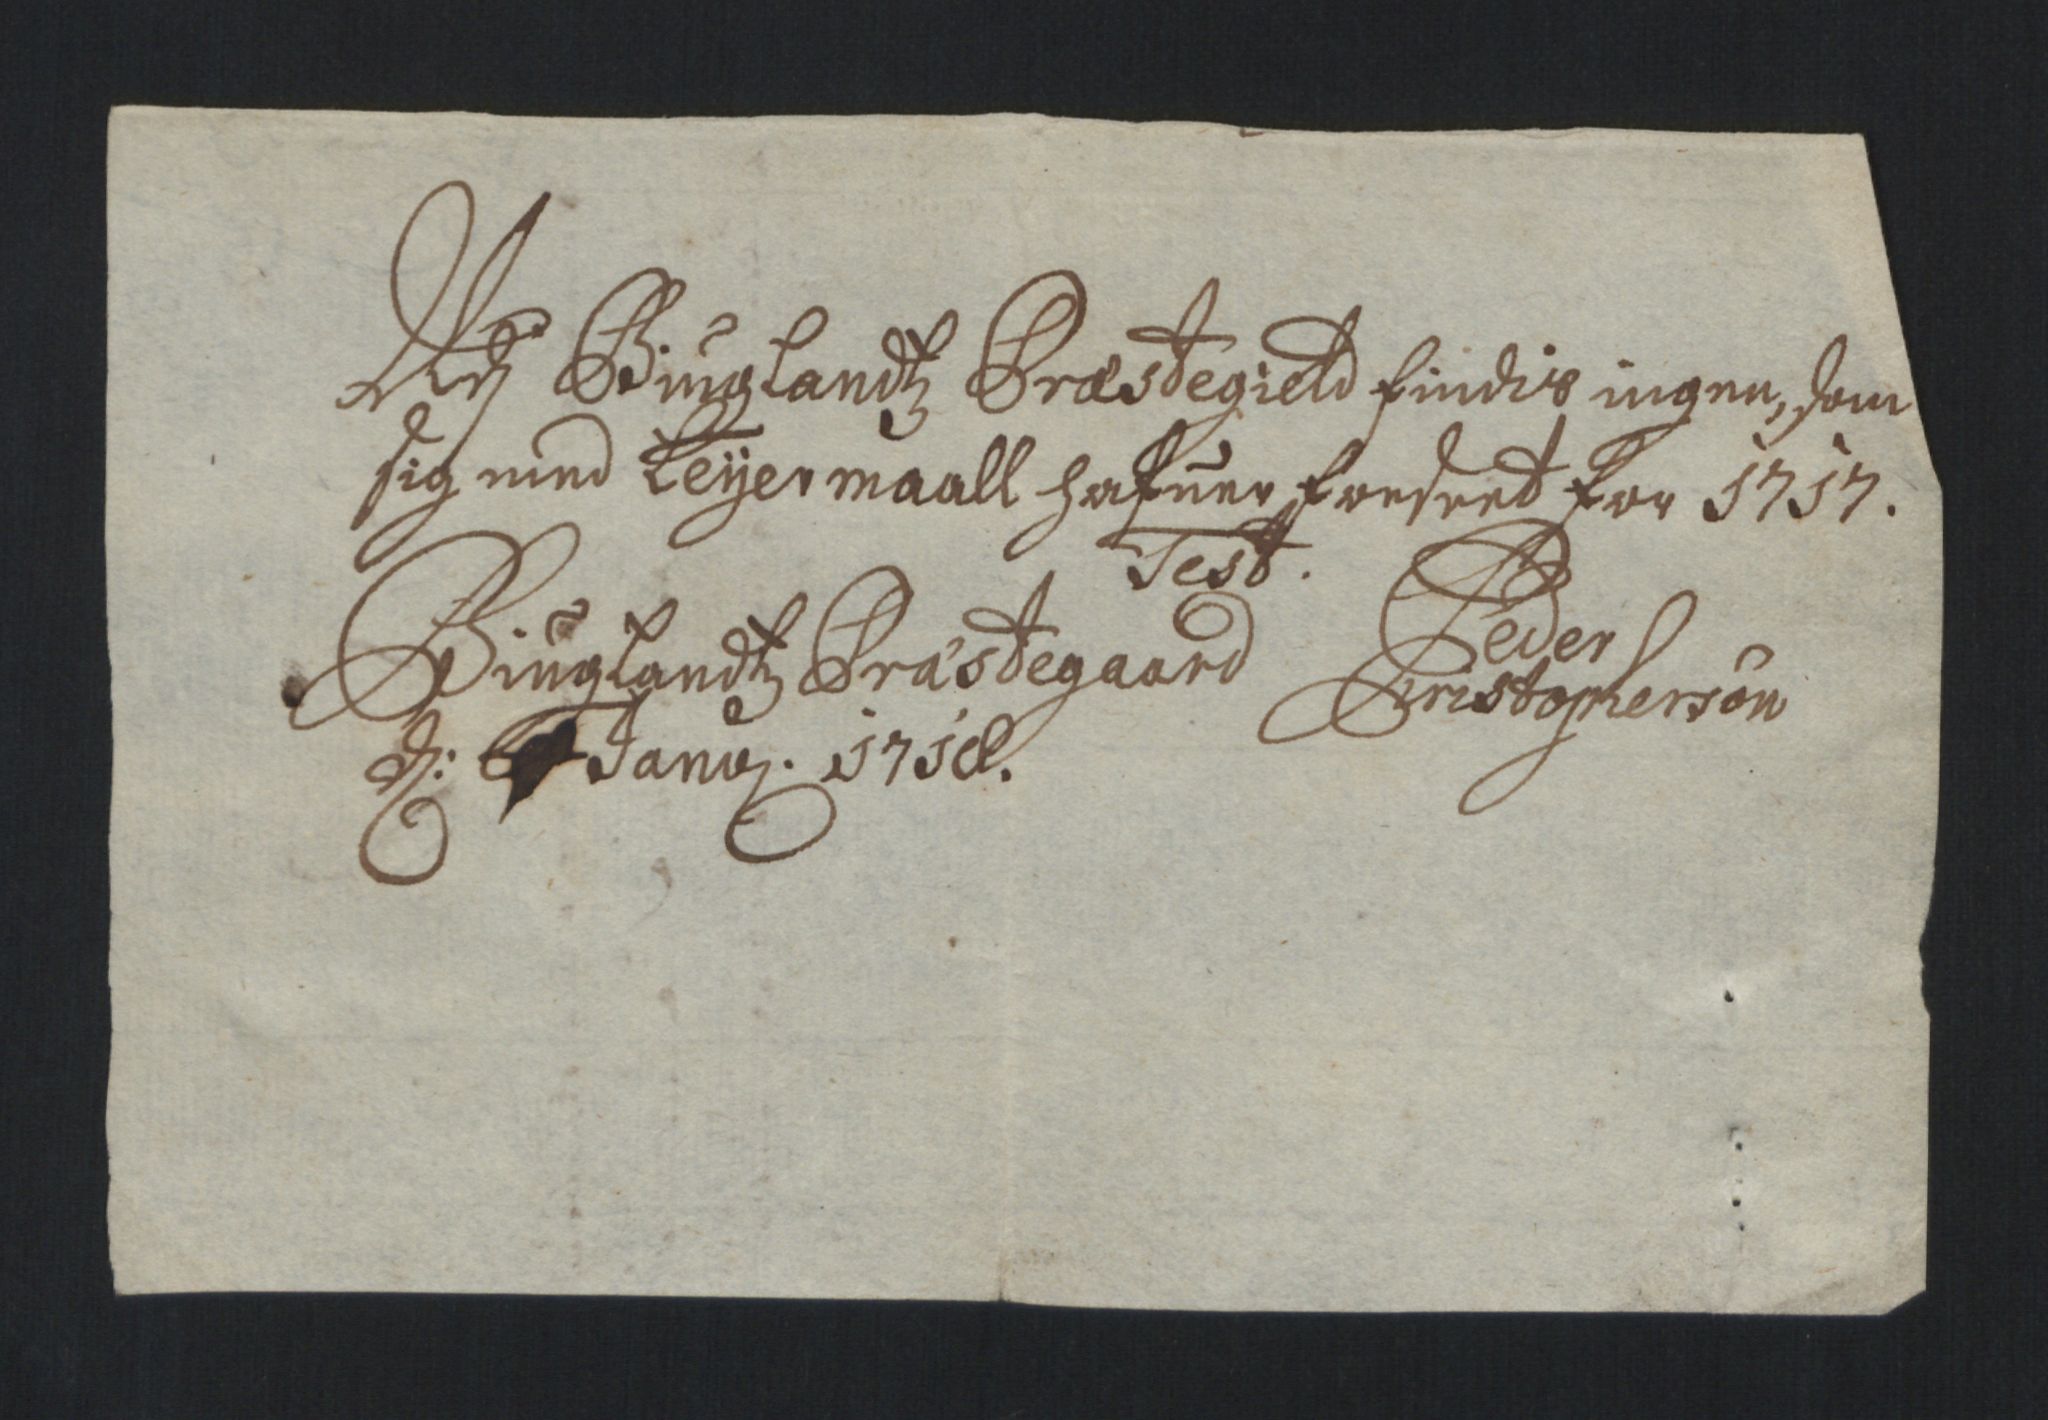 Udj Biuglandtz Præstegield findis ingen, som
sig med Leyermaall hafuer forseet for 1717.
Test.
Biuglandtz Præstegaard Peder
Christophersøn
d: Janv. 1718.